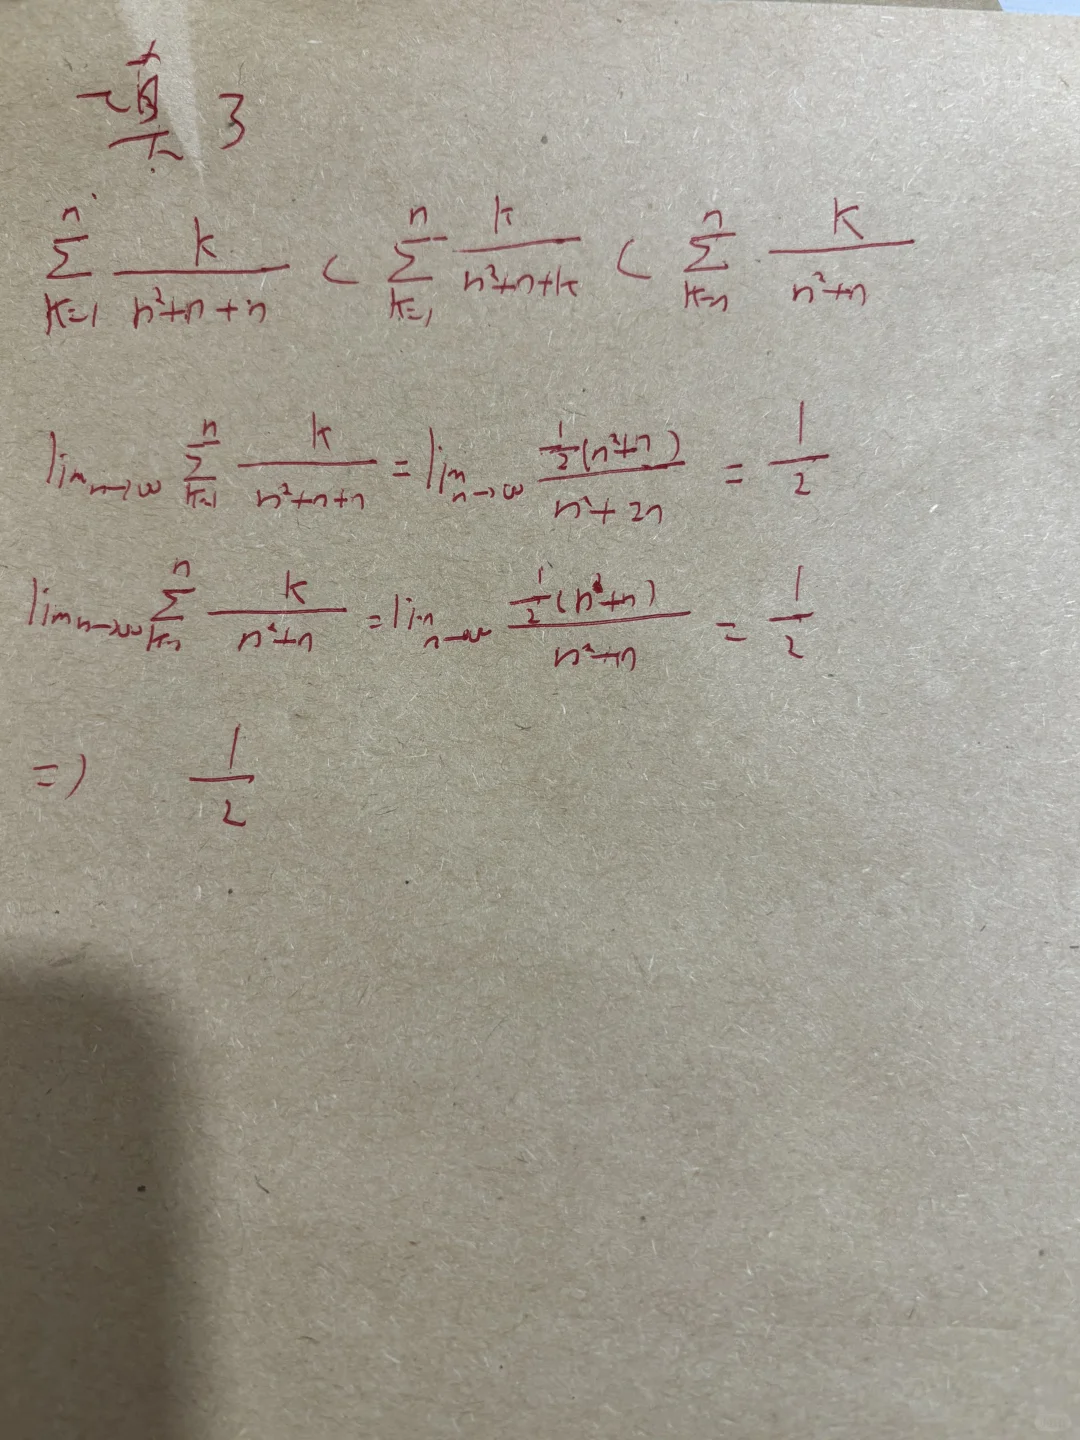 3
\sum_{k=1}^{n} \frac{k}{n^2+n+n} < \sum_{k=1}^{n} \frac{k}{n^2+n+k} < \sum_{k=n}^{n} \frac{k}{n^2+n}
\lim_{n→∞} \sum_{k=1}^{n} \frac{k}{n^2+n+n} = \lim_{n→∞} \frac{\frac{1}{2}(n^2+n)}{n^2+2n} = \frac{1}{2}
\lim_{n→∞} \sum_{k=n}^{n} \frac{k}{n^2+n} = \lim_{n→∞} \frac{\frac{1}{2}(n^2+n)}{n^2+n} = \frac{1}{2}
=) \frac{1}{2}